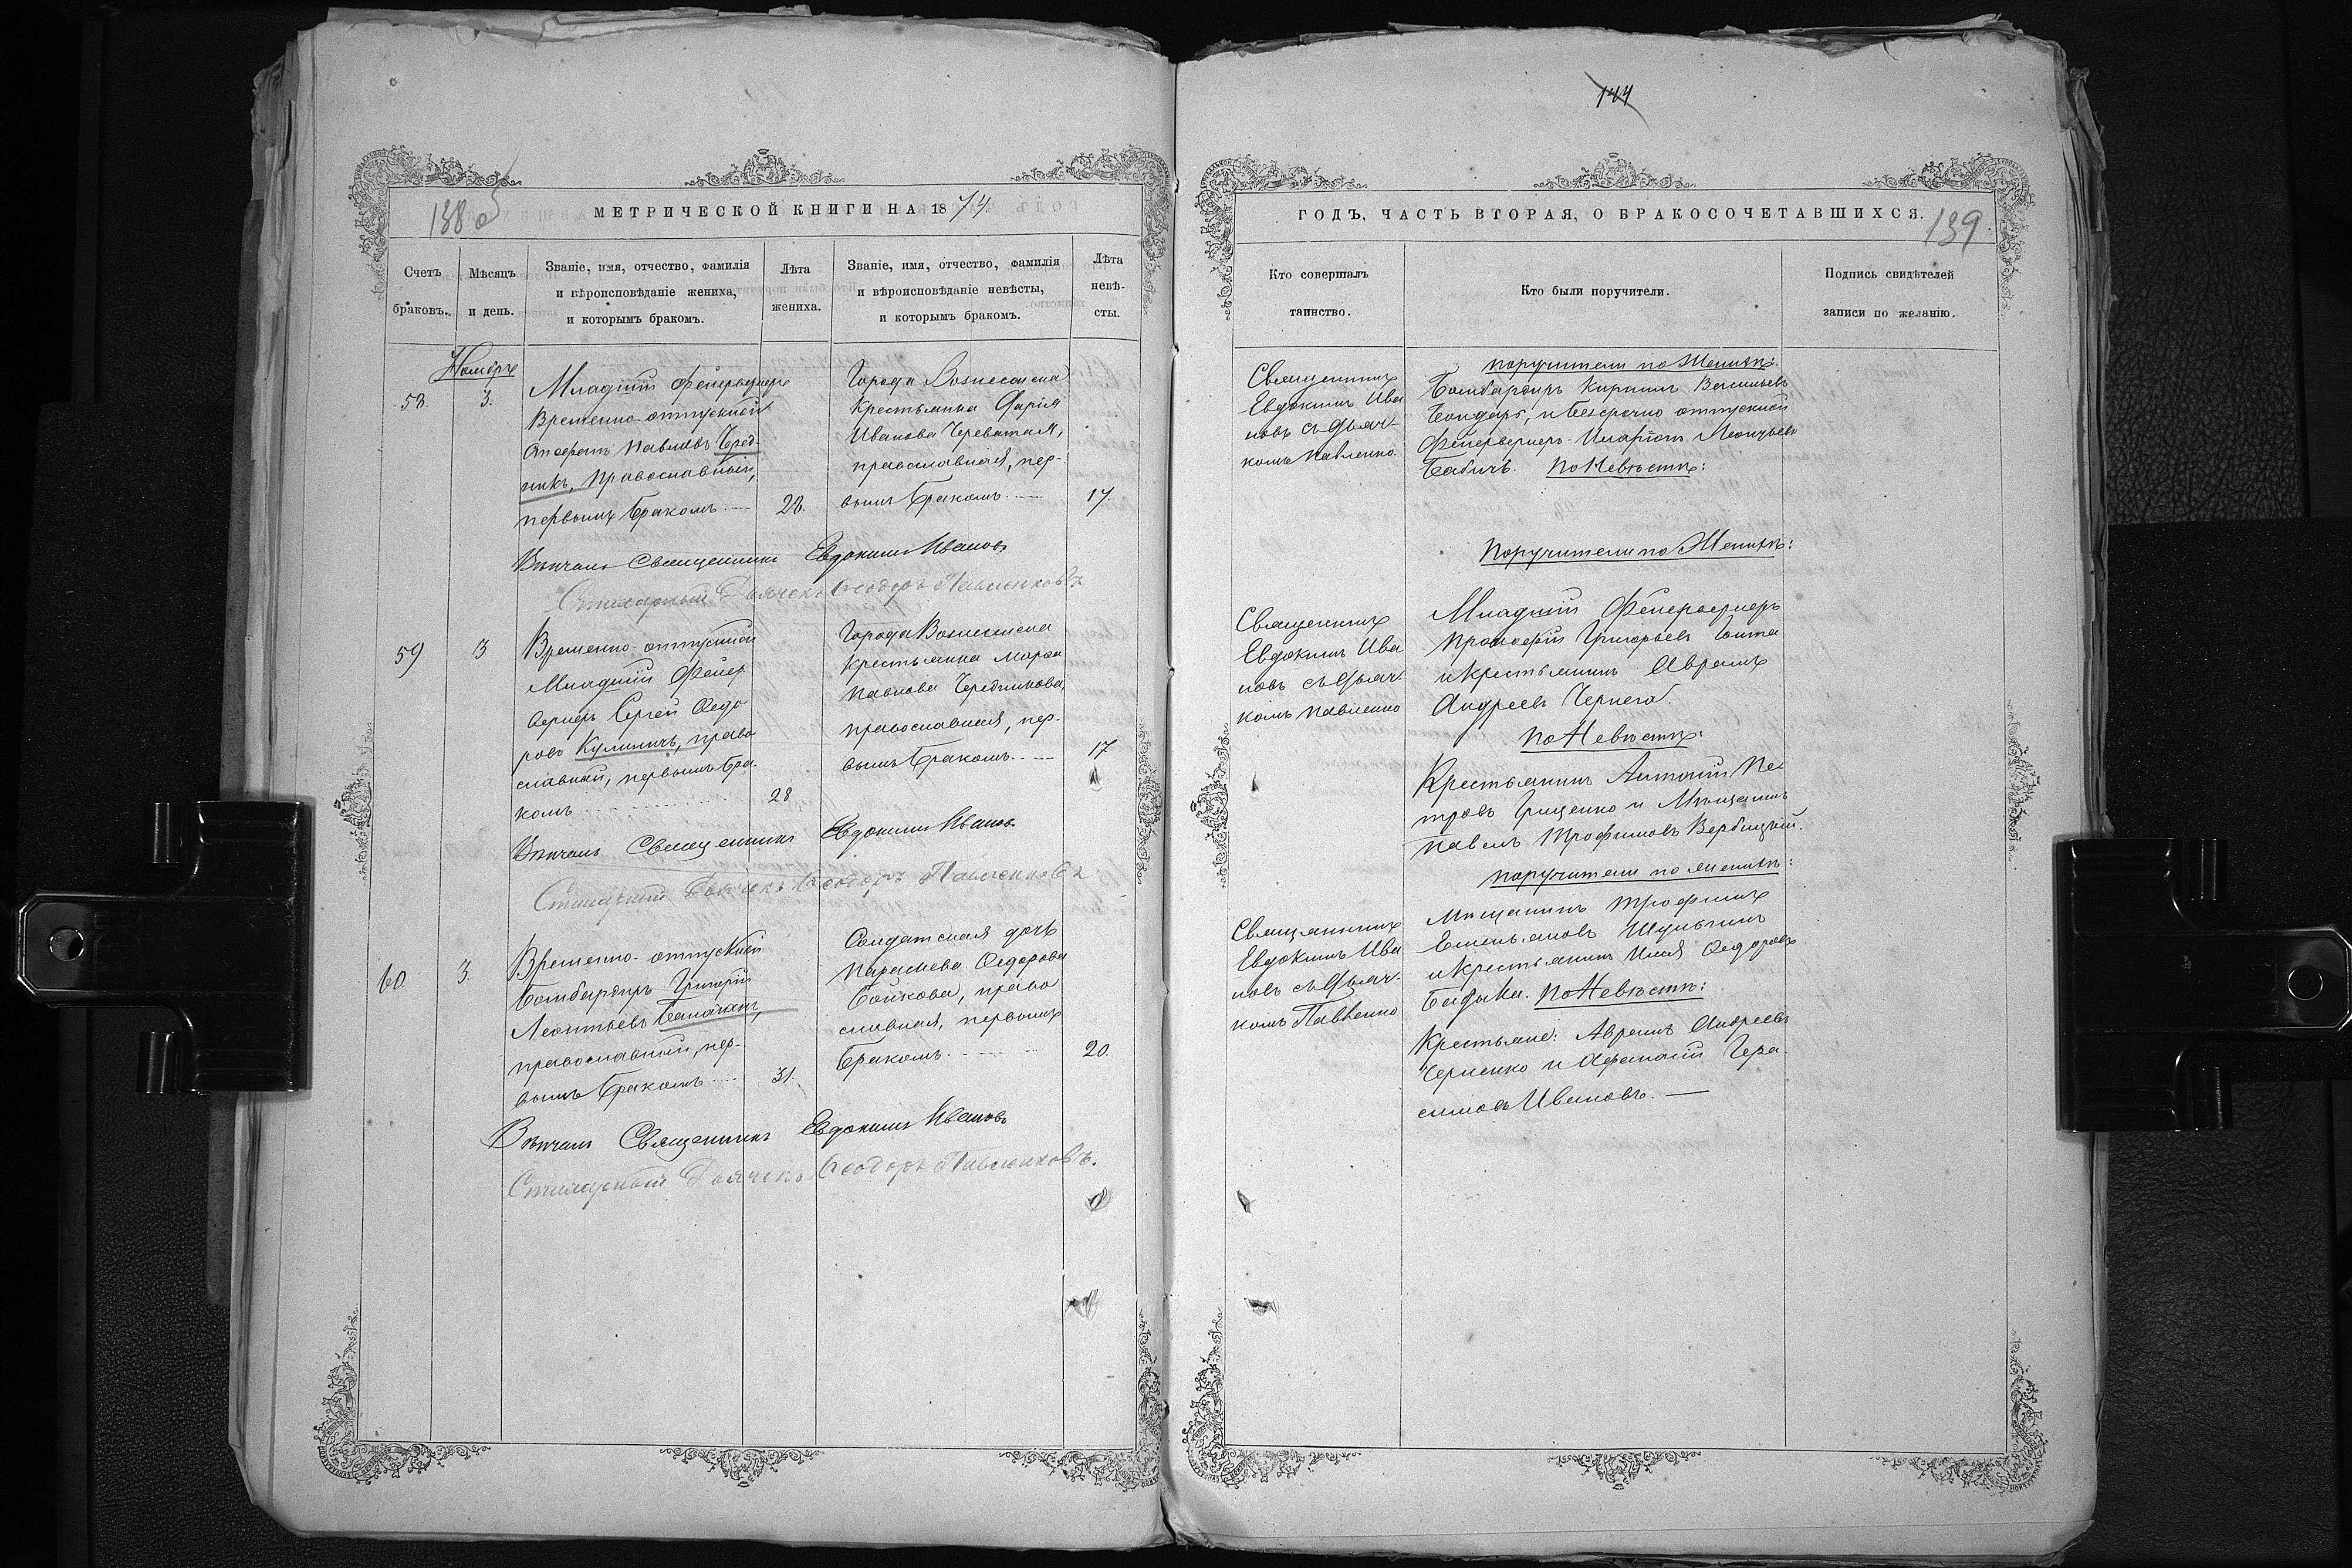 138 об
МЕТРИЧЕСКОЙ КНИГИ НА 1874
Счетъ браковъ.
Мѣсяцъ и день.
Званіе, имя, отчество, фамилія
и вѣроисповѣданіе жениха,
и которымъ бракомъ.
Лѣта жениха.
Званіе, имя, отчество, фамилія
и вѣроисповѣданіе невѣсты,
и которымъ бракомъ.
Лѣта невѣ-
сты.
Ноябрь
58.
3.
Младшій фейерверкеръ
Временно-отпускной
Онофрій Павловъ Черед-
никъ, Православный,
первымъ бракомъ
28.
Города Вознесенска
Крестьянка Дарія
Иванова Череватая,
православная, пер-
вымъ бракомъ
17.
Вѣнчалъ Священникъ Евдокимъ Ивановъ
Стихарный Дьячекъ Ѳеодоръ Павленковъ
59
3
Временно-отпускной
Младшій Фейер
веркеръ Сергей Ѳедо
ровъ Кулиничъ, право
славный, первымъ бра
комъ
28
Города Вознесенска
крестьянка Марѳа
Павлова Чередникова,
православная, пер-
вымъ бракомъ
17
Вѣнчалъ Священникъ Евдокимъ Ивановъ
Стихарный Дьячекъ Ѳеодоръ Павленковъ
60
3.
Временно-отпускной
Бомбардиръ Григорій
Леонтьевъ
православный, пер-
вымъ бракомъ
31.
Солдатская дочь
Параскева Ѳедорова
Бойкова, право
славная, первымъ
бракомъ
20.
Вѣнчалъ Священникъ Евдокимъ Ивановъ
Стихарный Дьячекъ Ѳеодоръ Павленковъ.
144
ГОДЪ, ЧАСТЬ ВТОРАЯ, О БРАКОСОЧЕТАВШИХСЯ.
139
Кто совершалъ
таинство.
Кто были поручители.
Подпись свидѣтелей
записи по желанію.
Священникъ
Евдокимъ Ива
новъ съ дьяч-
комъ Павленко
поручители по Женихѣ:
Бомбардиръ Кирилъ Васильевъ
Бондарь, и безсрочно отпускной
Фейерверкеръ Иларіонъ Леонтьевъ
Бабичъ. По Невѣстѣ:
Поручители по Женихѣ:
Священникъ
Евдокимъ Ива
новъ съ дьяч.
комъ Павленко
Младшій Фейерверкеръ
Прокофій Григорьевъ
и крестьянинъ Аврамъ
Андреевъ Чернега.
По Невѣстѣ:
Крестьянинъ Антоній Пе-
тровъ Грищенко и Мѣщанинъ
Павелъ Трофимовъ Вербицкій.
поручители по женихѣ:
Священникъ
Евдокимъ Ива
новъ съ дьяч.
комъ Павленко
Мѣщанинъ Трофимъ
Емельяновъ Шулькинъ
и крестьянинъ Илья Ѳедоровъ
По Невѣстѣ:
Крестьяне: Аврамъ Андреевъ
Черненко и Афанасій Гера-
симовъ Ивановъ.